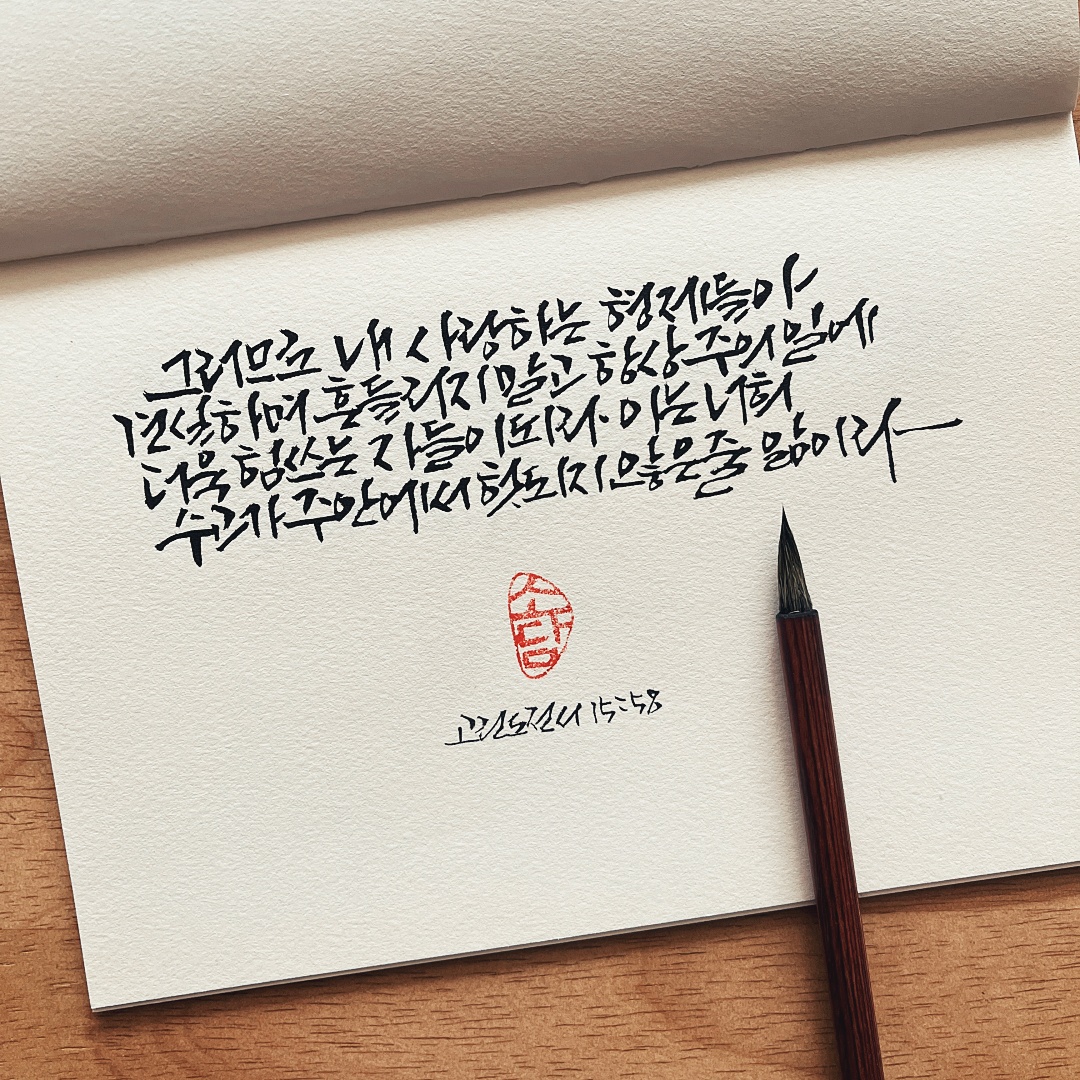 그러므로 내 사랑하는 형제들아
견실하며 흔들리지 말고 항상 주의 일에
더욱 힘쓰는 자들이 되라. 이는 너희
수고가 주 안에서 헛되지 않은 줄 앎이라
소담
고린도전서 15:58